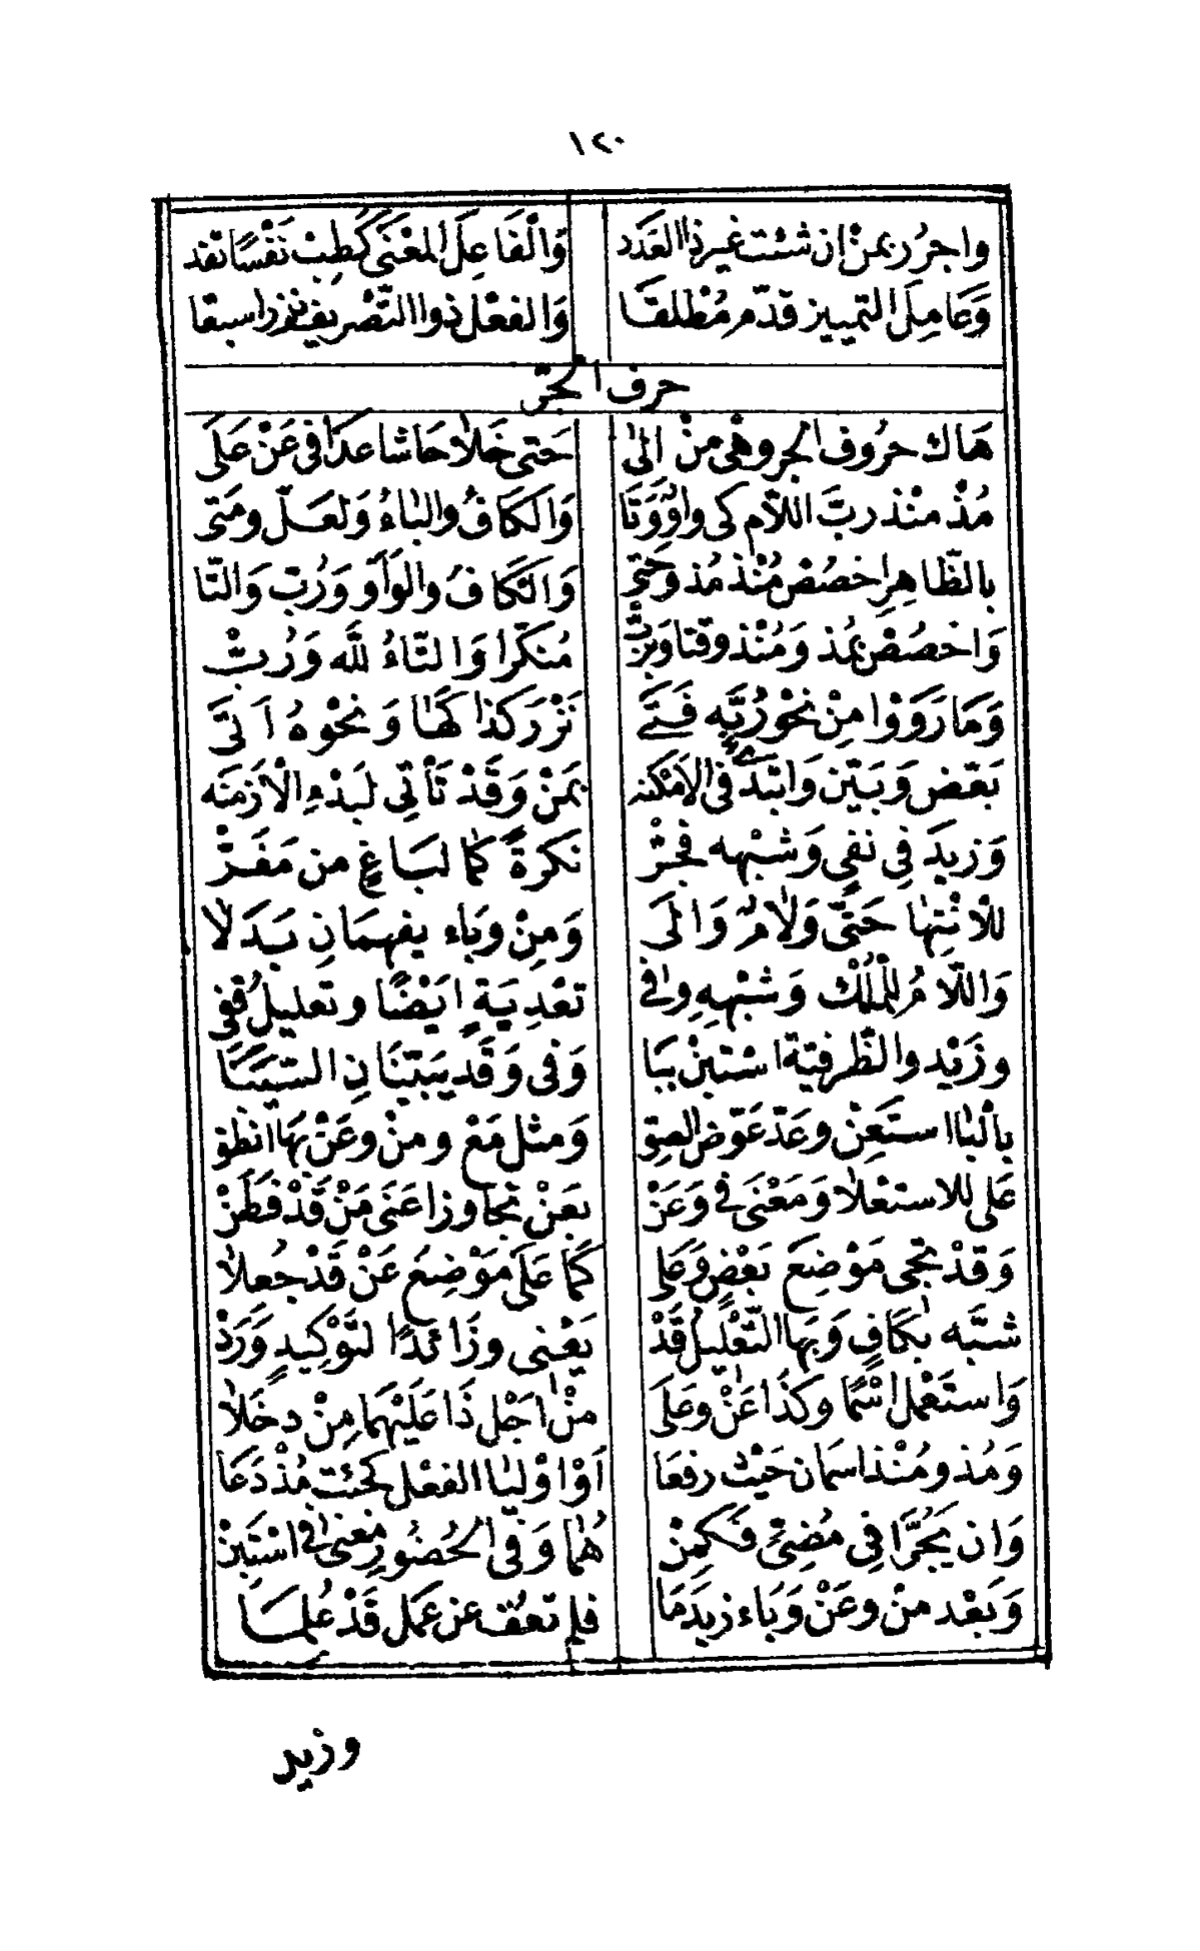 ١٢٠
واجرُر بمنْ إن شئت غير ذا العَدَد وَالْفَاعِلَ المعْنَى كَطِبْ نَفْسًا تفد
وَعَامِلَ التمييز قدّم مُطْلقَا وَالفعْل ذو التَّصْريف نزرا سبقا
حرف الجرّ
هَاك حرُوف الجر وهْى منْ الىٰ حَتى خَلاٰ حَاشا عدَا فى عَنْ عَلَى
مُذْ منْذ ربَّ اللاّم كى واوٌ وَتَا وَالكَافُ والبٰاءُ وَلعَلّ ومَتى
بالظّاهِرِ اخصُصْ مُنْذ مُذ وحَتى وَالكَافُ والوَاو وَرُبّ وَالتّا
وَاخصُصْ بمُذ وَمُنْذ وقتا وَبرُبّ مُنَكّرا وَالتّاءُ للّٰه وَرُبّْ
وَمَا رَوَوْا مِنْ نحْو رُبَّه فَتَى نَزْر كَذا كَهٰا وَنحْوهُ اَتَى
بَعّض وَبَيّن وَابْتَدئ فى الاَمْكنه بمَنْ وَقَدْ تَأتى لبَدْءِ الْاَزمنَه
وَزيدَ فِى نفىٍ وَشبْهه فجْرّ نكرةً كمَا لبَاغٍ من مَفَرّْ
للْانْتِهَا حَتىّ وَلاٰمٌ وَالَى وَمِنْ وَبَاء يفهمَانِ بَدَلاٰ
وَاللّامُ للْملْك وَشبْهِهِ وفى تعْدِيَةٍ ايَضًا وتعليلٌ قفى
وزَيْد والظّرفيّة استبنْ ببَا وَفى وَقَدْ يبَيّنَانِ السّببَا
بالْبٰا استَعِنْ وعَدّ عَوّض الصق وَمثل مَعْ ومنْ وعَنْ بهَا انطق
عَلى للاستعْلاٰ وَمَعْنَى فى وَعَنْ بعَنْ تجَاوزا عَنَى مَنْ قَدْ فَطَنْ
وَقدْ تجى مَوْضعَ بَعْضٍ وَعَلى كمَا عَلَى مَوْضِعَ عَنْ قَدْ جُعلاٰ
شبّه بكَافٍ وَبهَا التّعْليل قَدْ يَعْنى وزَائدًا لتَوْكِيدٍ وَرَدْ
وَاستعْمل اسْمًا وكذَا عَنْ وعَلَى منْ اَجْل ذَا عَلَيْهمَا مِنْ دخَلاٰ
وَمُذ ومُنْذ اسمَان حَيْث رفعَا اَوْ اوْليَا الفعْل كجئت مُذْ دَعَا
وَان يَجُرَّا فِى مُضىّ فَكمِنْ هُمَا وَفى الحُضُورِ معْنى فى اسْتَبِنْ
وَبَعْد منْ وعَنْ وَبَاء زيدَ مَا فلم تعُقْ عن عمَل قَدْ عُلمَا
وزيد